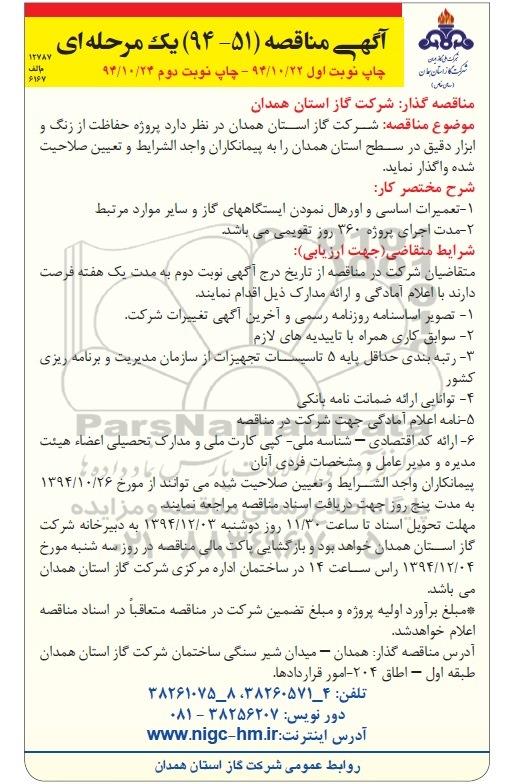 آگهی مناقصه (۵۱- ۹۴) یک مرحله‌ای
چاپ نوبت اول ۹۴/۱۰/۲۲ - چاپ نوبت دوم ۹۴/۱۰/۲۴
۱۲۷۸۷
م‌الف
۶۱۶۷
شرکت ملی گاز ایران
شرکت گاز استان همدان
(سهامی خاص)
مناقصه گذار: شرکت گاز استان همدان
موضوع مناقصه: شــرکت گاز اســتان همدان در نظر دارد پروژه حفاظت از زنگ و
ابزار دقیق در ســطح استان همدان را به پیمانکاران واجد الشرایط و تعیین صلاحیت
شده واگذار نماید.
شرح مختصر کار:
۱-تعمیرات اساسی و اورهال نمودن ایستگاههای گاز و سایر موارد مرتبط
۲-مدت اجرای پروژه ۳۶۰ روز تقویمی می باشد.
شرایط متقاضی(جهت ارزیابی):
متقاضیان شرکت در مناقصه از تاریخ درج آگهی نوبت دوم به مدت یک هفته فرصت
دارند با اعلام آمادگی و ارائه مدارک ذیل اقدام نمایند.
۱- تصویر اساسنامه روزنامه رسمی و آخرین آگهی تغییرات شرکت.
۲- سوابق کاری همراه با تاییدیه های لازم
۳- رتبه بندی حداقل پایه ۵ تاسیســات تجهیزات از سازمان مدیریت و برنامه ریزی
کشور
۴- توانایی ارائه ضمانت نامه بانکی
۵-نامه اعلام آمادگی جهت شرکت در مناقصه
۶- ارائه کد اقتصادی – شناسه ملی- کپی کارت ملی و مدارک تحصیلی اعضاء هیئت
مدیره و مدیر عامل و مشخصات فردی آنان
پیمانکاران واجد الشــرایط و تعیین صلاحیت شده می توانند از مورخ ۱۳۹۴/۱۰/۲۶
به مدت پنج روز جهت دریافت اسناد مناقصه مراجعه نمایند
مهلت تحویل اسناد تا ساعت ۱۱/۳۰ روز دوشنبه ۱۳۹۴/۱۲/۰۳ به دبیرخانه شرکت
گاز اســتان همدان خواهد بود و بازگشایی پاکت مالی مناقصه در روز سه شنبه مورخ
۱۳۹۴/۱۲/۰۴ راس ســاعت ۱۴ در ساختمان اداره مرکزی شرکت گاز استان همدان
می باشد.
*مبلغ برآورد اولیه پروژه و مبلغ تضمین شرکت در مناقصه متعاقباً در اسناد مناقصه
اعلام خواهدشد.
آدرس مناقصه گذار: همدان – میدان شیر سنگی ساختمان شرکت گاز استان همدان
طبقه اول – اطاق ۲۰۴-امور قراردادها.
تلفن: ۴_۳۸۲۶۰۵۷۱، ۸_۳۸۲۶۱۰۷۵
دور نویس: ۳۸۲۵۶۲۰۷ - ۰۸۱
آدرس اینترنت:www.nigc-hm.ir
روابط عمومی شرکت گاز استان همدان
ParsNamadData
۰۲۱-۸۸۳۴۹۶۷۰-۵